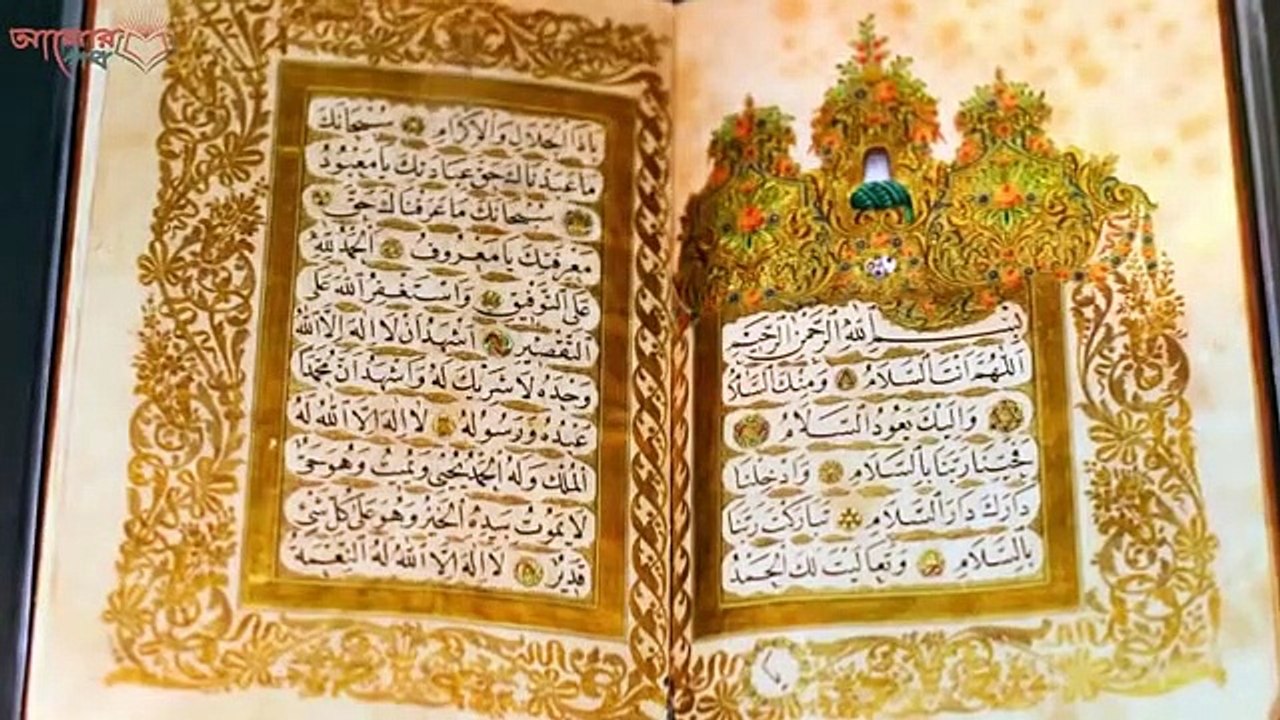 আলোর
بسم الله الرحمن الرحيم
اللهم انت السلام ومنك السلام
واليك يعود السلام
فحينا ربنا بالسلام وادخلنا
دارك دار السلام تباركت ربنا
بالسلام وتعاليت لك الحمد
ياذا الجلال والاكرام سبحانك
ما عبدناك حق عبادتك يا معبود
سبحانك ما عرفناك حق
معرفتك يا معروف الحمد لله
على التوفيق واستغفر الله على
التقصير اشهد ان لا اله الا الله
وحده لا شريك له واشهد ان محمدا
عبده ورسوله لا اله الا الله له
الملك وله الحمد يحيى ويميت وهو حي
لا يموت بيده الخير وهو على كل شئ
قدير لا اله الا الله له النعمة